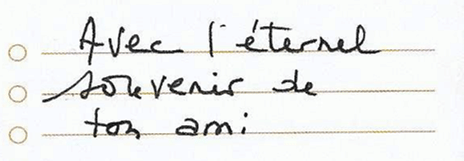 Avec l'éternel
souvenir de
ton ami